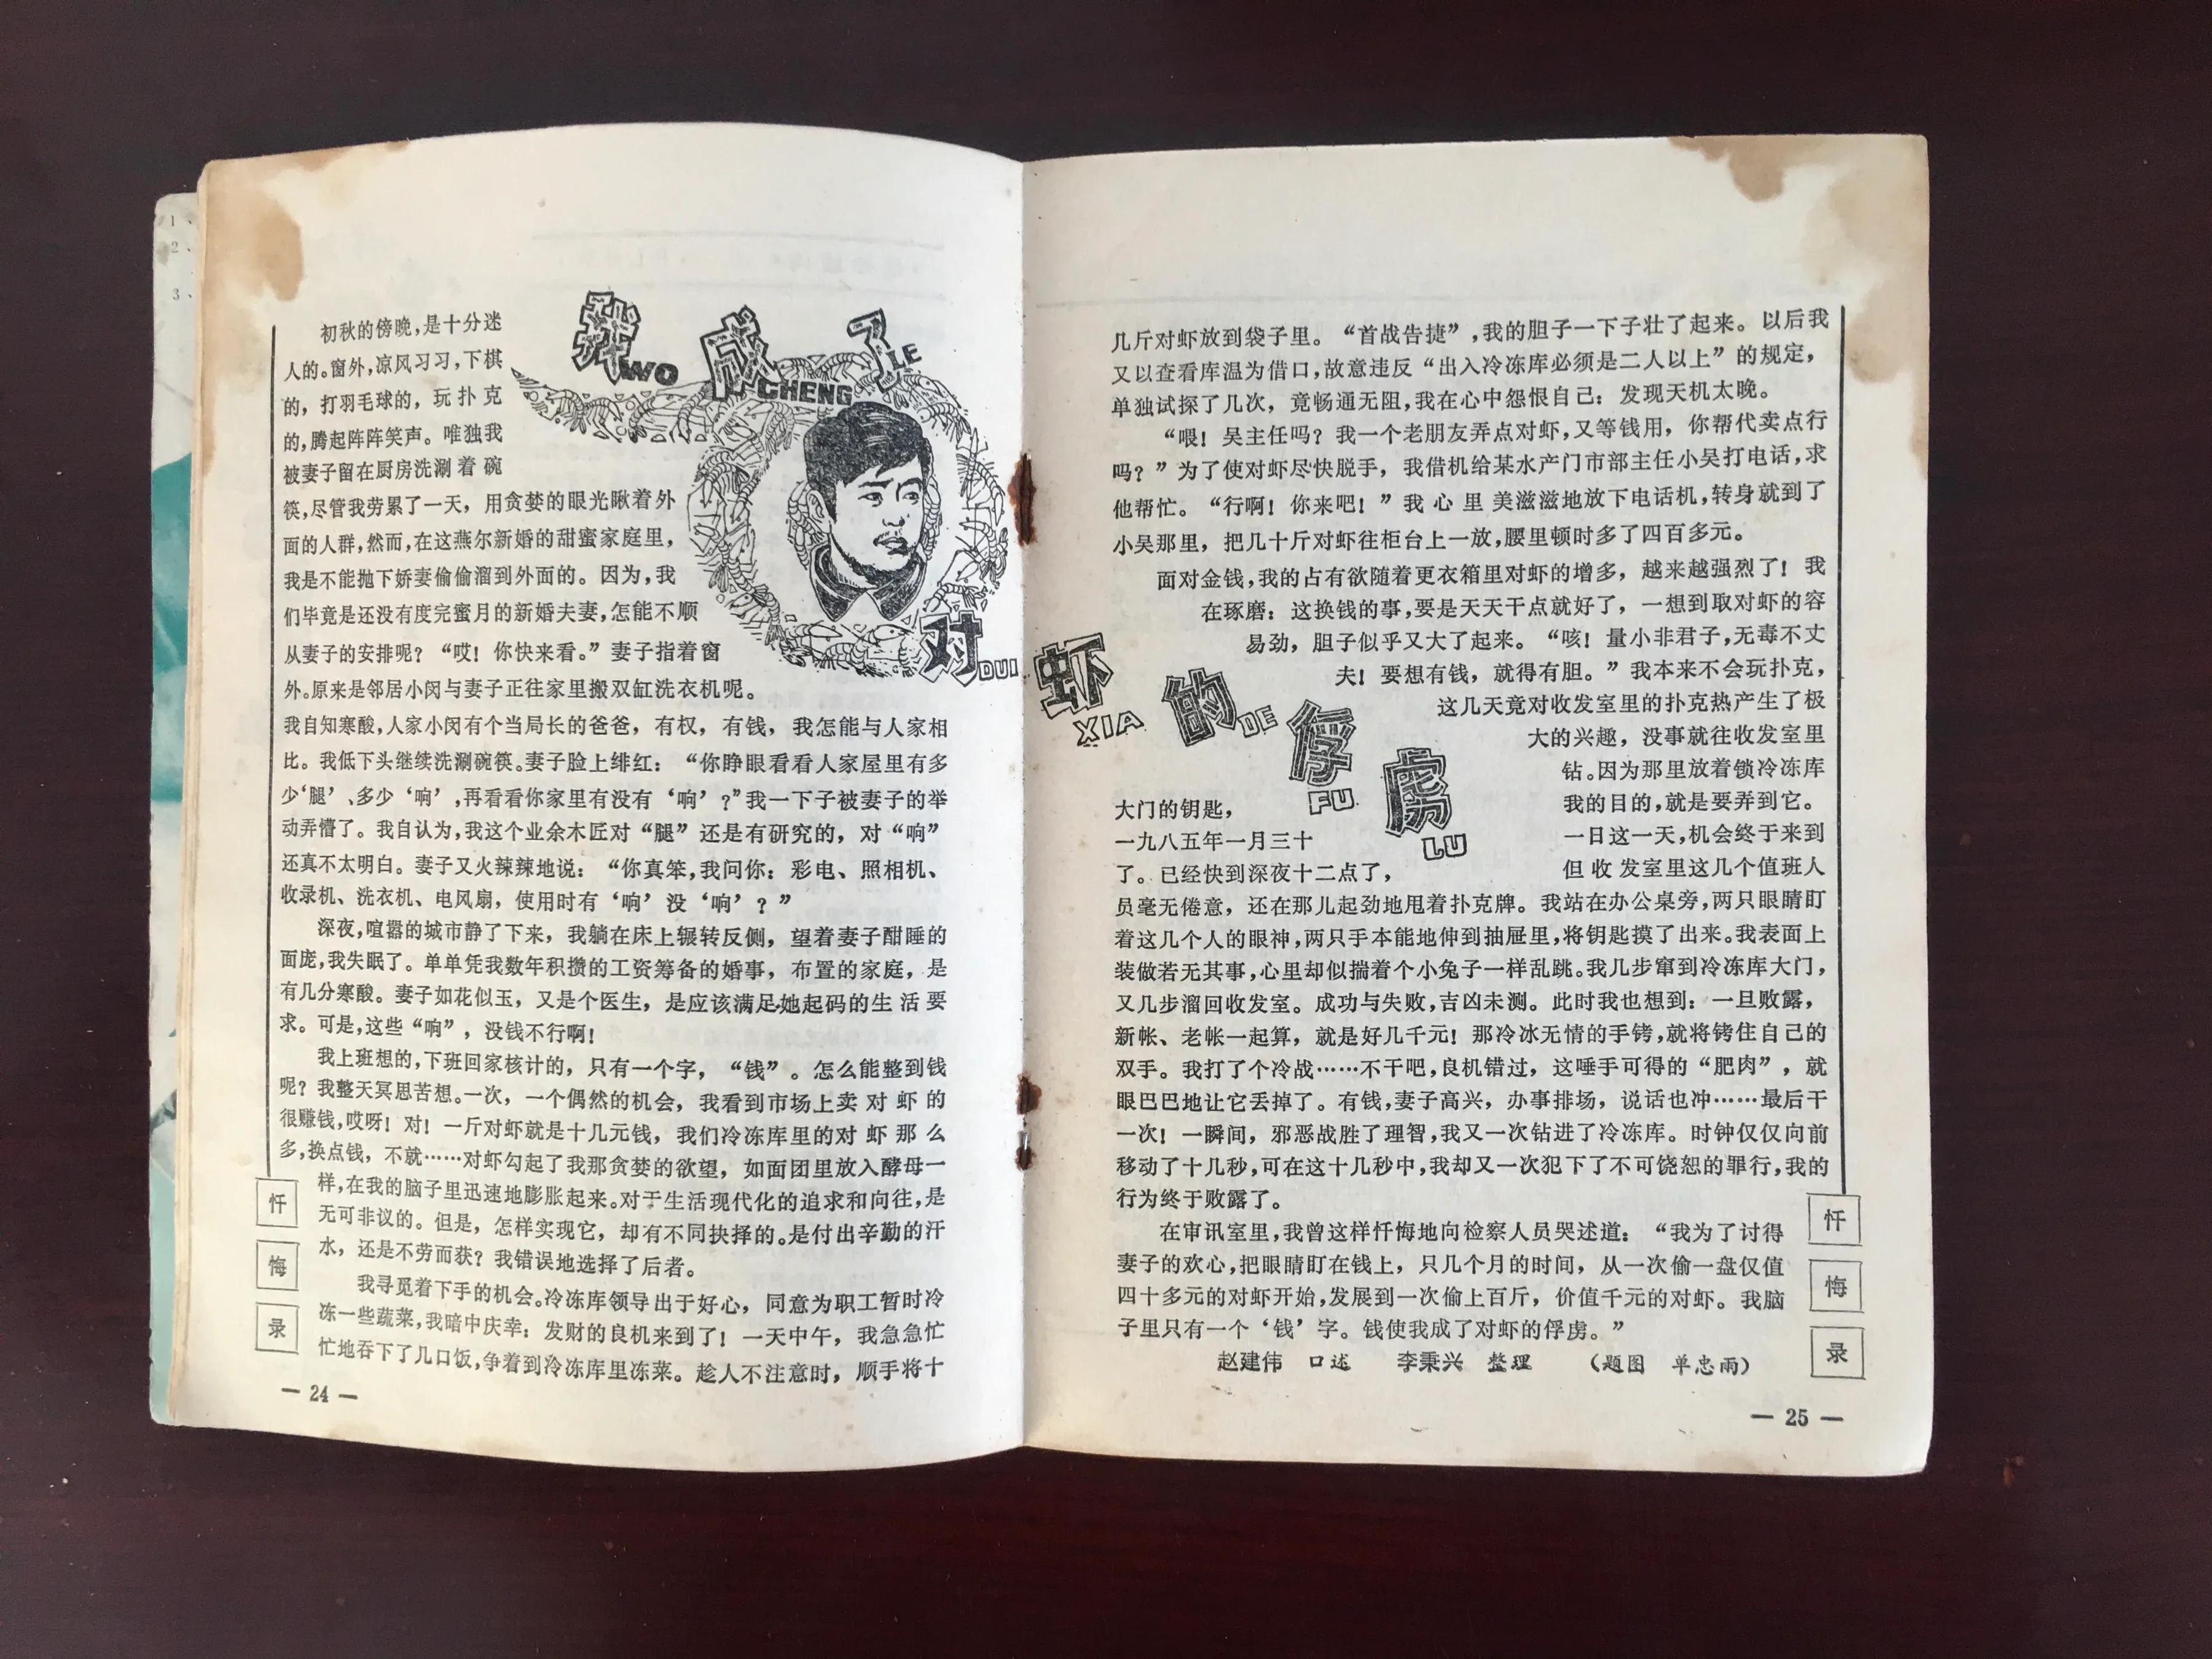 1、
2、
3、
我 成 了
WO CHENG LE
对 虾 的 俘 虏
DUI XIA DE FU LU
初秋的傍晚，是十分迷
人的。窗外，凉风习习，下棋
的，打羽毛球的，玩扑克
的，腾起阵阵笑声。唯独我
被妻子留在厨房洗涮着碗
筷，尽管我劳累了一天，用贪婪的眼光瞅着外
面的人群，然而，在这燕尔新婚的甜蜜家庭里，
我是不能抛下娇妻偷偷溜到外面的。因为，我
们毕竟是还没有度完蜜月的新婚夫妻，怎能不顺
从妻子的安排呢？“哎！你快来看。”妻子指着窗
外。原来是邻居小闵与妻子正往家里搬双缸洗衣机呢。
我自知寒酸，人家小闵有个当局长的爸爸，有权，有钱，我怎能与人家相
比。我低下头继续洗涮碗筷。妻子脸上绯红：“你睁眼看看人家屋里有多
少‘腿’、多少‘响’，再看看你家里有没有‘响’？”我一下子被妻子的举
动弄懵了。我自认为，我这个业余木匠对“腿”还是有研究的，对“响”
还真不太明白。妻子又火辣辣地说：“你真笨，我问你：彩电、照相机、
收录机、洗衣机、电风扇，使用时有‘响’没‘响’？”
深夜，喧嚣的城市静了下来，我躺在床上辗转反侧，望着妻子酣睡的
面庞，我失眠了。单单凭我数年积攒的工资筹备的婚事，布置的家庭，是
有几分寒酸。妻子如花似玉，又是个医生，是应该满足她起码的生活要
求。可是，这些“响”，没钱不行啊！
我上班想的，下班回家核计的，只有一个字，“钱”。怎么能整到钱
呢？我整天冥思苦想。一次，一个偶然的机会，我看到市场上卖对虾的
很赚钱，哎呀！对！一斤对虾就是十几元钱，我们冷冻库里的对虾那么
多，换点钱，不就……对虾勾起了我那贪婪的欲望，如面团里放入酵母一
样，在我的脑子里迅速地膨胀起来。对于生活现代化的追求和向往，是
无可非议的。但是，怎样实现它，却有不同抉择的。是付出辛勤的汗
水，还是不劳而获？我错误地选择了后者。
我寻觅着下手的机会。冷冻库领导出于好心，同意为职工暂时冷
冻一些蔬菜，我暗中庆幸：发财的良机来到了！一天中午，我急急忙
忙地吞下了几口饭，争着到冷冻库里冻菜。趁人不注意时，顺手将十
忏
悔
录
— 24 —
几斤对虾放到袋子里。“首战告捷”，我的胆子一下子壮了起来。以后我
又以查看库温为借口，故意违反“出入冷冻库必须是二人以上”的规定，
单独试探了几次，竟畅通无阻，我在心中怨恨自己：发现天机太晚。
“喂！吴主任吗？我一个老朋友弄点对虾，又等钱用，你帮代卖点行
吗？”为了使对虾尽快脱手，我借机给某水产门市部主任小吴打电话，求
他帮忙。“行啊！你来吧！”我心里美滋滋地放下电话机，转身就到了
小吴那里，把几十斤对虾往柜台上一放，腰里顿时多了四百多元。
面对金钱，我的占有欲随着更衣箱里对虾的增多，越来越强烈了！我
在琢磨：这换钱的事，要是天天干点就好了，一想到取对虾的容
易劲，胆子似乎又大了起来。“咳！量小非君子，无毒不丈
夫！要想有钱，就得有胆。”我本来不会玩扑克，
这几天竟对收发室里的扑克热产生了极
大的兴趣，没事就往收发室里
钻。因为那里放着锁冷冻库
大门的钥匙，我的目的，就是要弄到它。
一九八五年一月三十一日这一天，机会终于来到
了。已经快到深夜十二点了，但收发室里这几个值班人
员毫无倦意，还在那儿起劲地甩着扑克牌。我站在办公桌旁，两只眼睛盯
着这几个人的眼神，两只手本能地伸到抽屉里，将钥匙摸了出来。我表面上
装做若无其事，心里却似揣着个小兔子一样乱跳。我几步窜到冷冻库大门，
又几步溜回收发室。成功与失败，吉凶未测。此时我也想到：一旦败露，
新帐、老帐一起算，就是好几千元！那冷冰无情的手铐，就将铐住自己的
双手。我打了个冷战……不干吧，良机错过，这唾手可得的“肥肉”，就
眼巴巴地让它丢掉了。有钱，妻子高兴，办事排场，说话也冲……最后干
一次！一瞬间，邪恶战胜了理智，我又一次钻进了冷冻库。时钟仅仅向前
移动了十几秒，可在这十几秒中，我却又一次犯下了不可饶恕的罪行，我的
行为终于败露了。
在审讯室里，我曾这样忏悔地向检察人员哭述道：“我为了讨得
妻子的欢心，把眼睛盯在钱上，只几个月的时间，从一次偷一盘仅值
四十多元的对虾开始，发展到一次偷上百斤，价值千元的对虾。我脑
子里只有一个‘钱’字。钱使我成了对虾的俘虏。”
赵建伟 口述 李秉兴 整理 （题图 单忠雨）
忏
悔
录
— 25 —